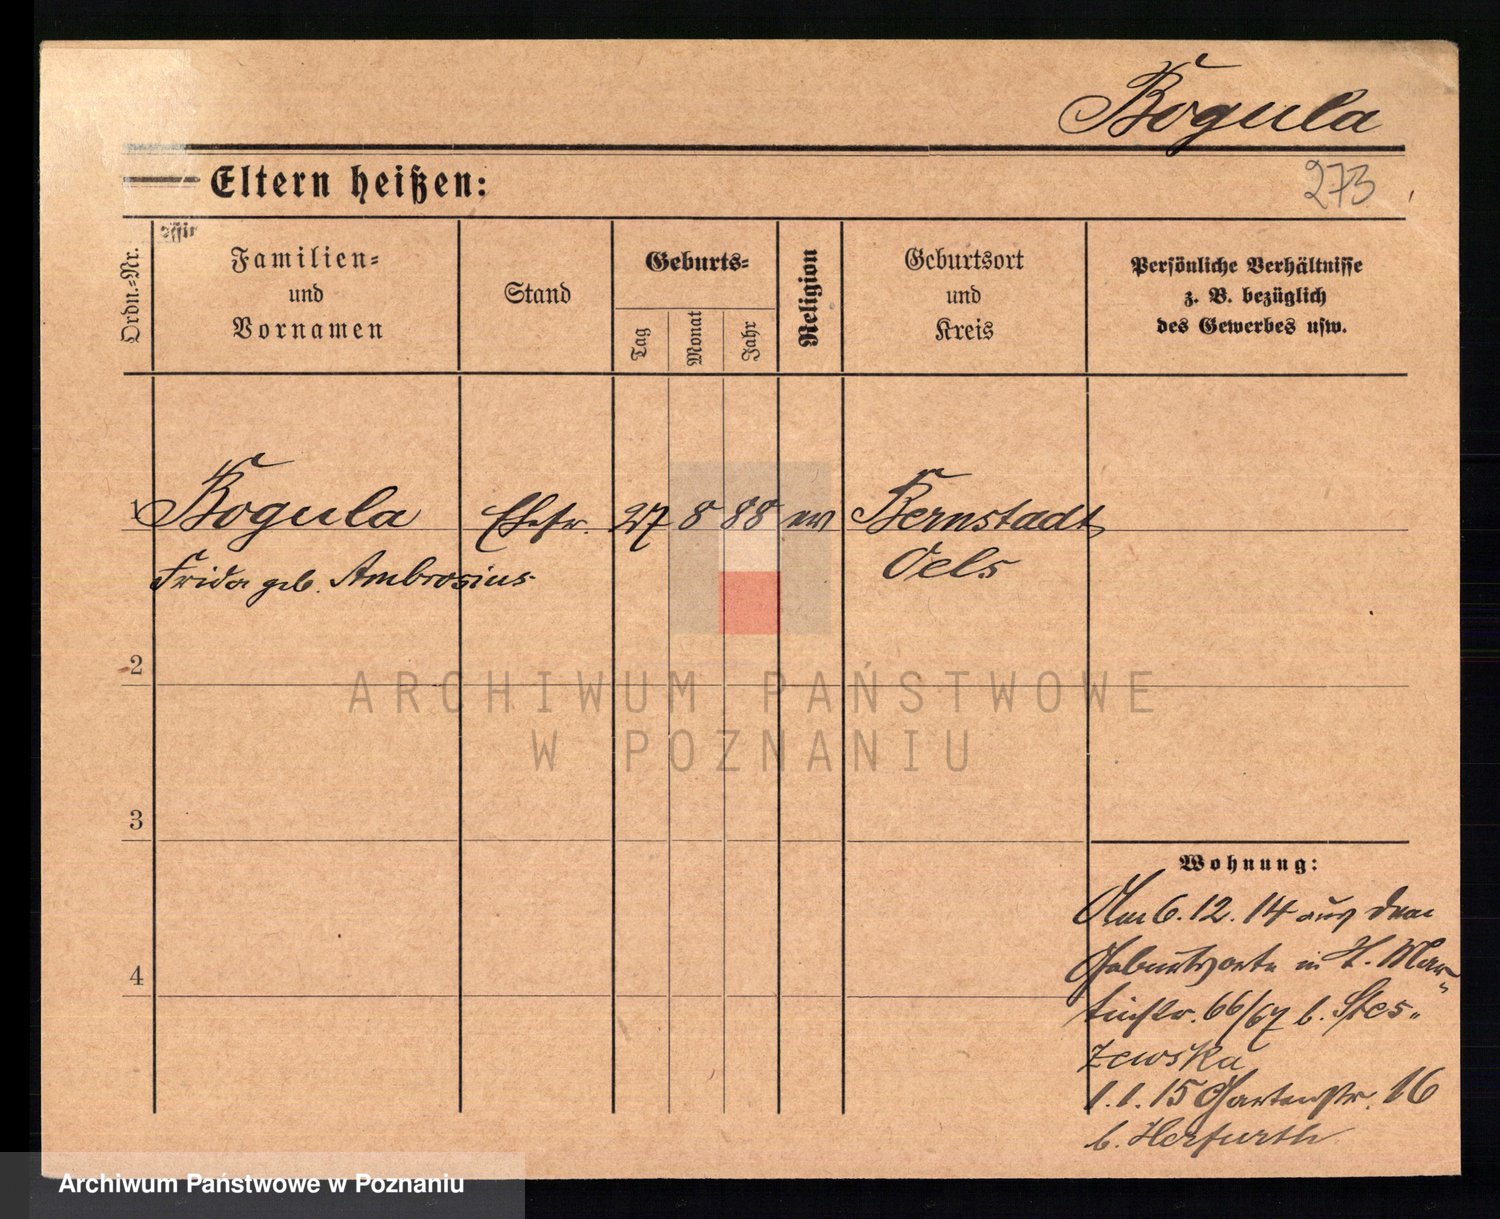 Bogula
Eltern heißen:
273
Ordn.-Nr.
Familien-
und
Vornamen
Stand
Geburts-
Tag
Monat
Jahr
Religion
Geburtsort
und
Kreis
Persönliche Verhältnisse
z. B. bezüglich
des Gewerbes usw.
1 Bogula Ehefr. 27 8 88 ev Bernstadt
Frida geb. Ambrosius Oels
2
ARCHIWUM PAŃSTWOWE
W POZNANIU
3
Wohnung:
Am 6.12.14 aus dem
Geburtsorte in St. Mar-
tinstr. 66/67 b. Stes-
zewska
4
1.1.15 Gartenstr. 16
b. Herfurth
Archiwum Państwowe w Poznaniu